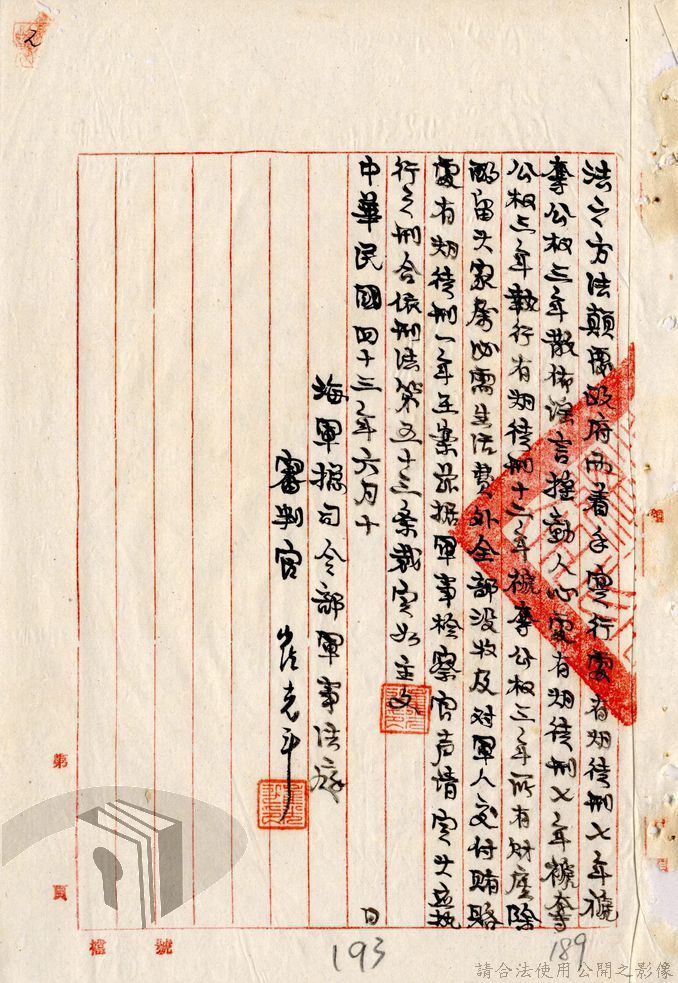 法之方法顛覆政府而着手實行處有期徒刑七年褫
奪公权三年散佈謠言搖動人心處有期徒刑七年褫奪
公权三年執行有期徒刑十二年褫奪公权三年所有財產除
酌留其家屬必需生活費外全部没收及对軍人交付賄賂
處有期徒刑一年在案茲据軍事檢察官声請定其应执
行之刑合依刑法第五十三条裁定如主文
中華民國四十三年六月十 日
海軍総司令部軍事法庭
審判官 崔克平
第 頁
檔 號
2
193
189
請合法使用公開之影像